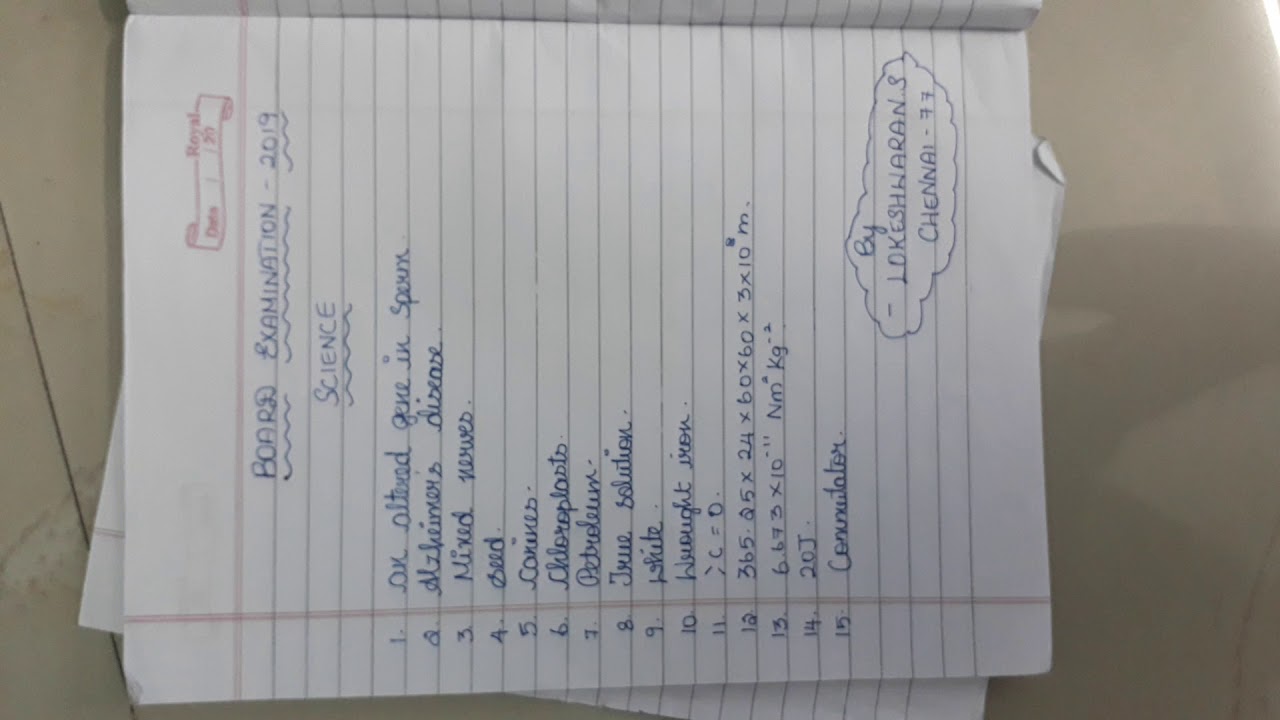 Royal
Date / /20
BOARD EXAMINATION - 2019
SCIENCE
1. an altered gene in sperm.
2. Alzheimer's disease.
3. Mixed nerves.
4. seed.
5. Canines.
6. Chloroplasts.
7. Petroleum.
8. True solution.
9. White.
10. Wrought iron.
11. >C=O.
12. 365.25 x 24 x 60 x 60 x 3 x 10⁸ m.
13. 6.673 x 10⁻¹¹ Nm² Kg⁻²
14. 20J.
15. Commutator.
By
- LOKESHWARAN.S
CHENNAI - 77